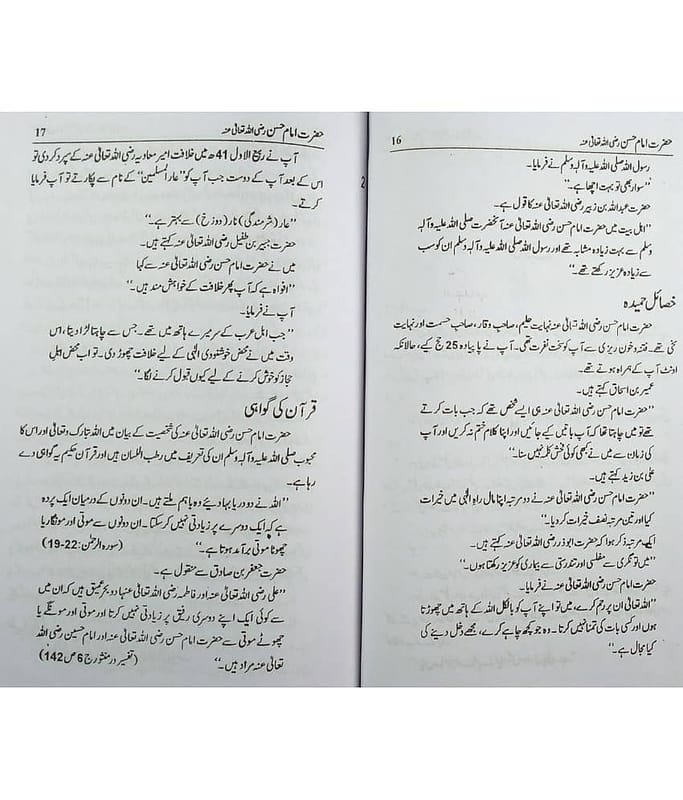 حضرت امام حسن رضی اللہ تعالیٰ عنہ 16
رسول اللہ صلی اللہ علیہ وآلہ وسلم نے فرمایا۔
’’سوار بھی تو بہت اچھا ہے۔‘‘
حضرت عبداللہ بن زبیر رضی اللہ تعالیٰ عنہ کا قول ہے۔
’’اہل بیت میں حضرت امام حسن رضی اللہ تعالیٰ عنہ آنحضرت صلی اللہ علیہ وآلہ
وسلم سے بہت زیادہ مشابہ تھے اور رسول اللہ صلی اللہ علیہ وآلہ وسلم ان کو سب
سے زیادہ عزیز رکھتے تھے۔‘‘
خصائل حمیدہ
حضرت امام حسن رضی اللہ تعالیٰ عنہ نہایت حلیم، صاحب وقار، صاحب حشمت اور نہایت
سخی تھے۔ فتنہ و خون ریزی سے آپ کو سخت نفرت تھی۔ آپ نے پا پیادہ 25 حج کیے، حالانکہ
اونٹ آپ کے ہمراہ ہوتے تھے۔
عمیر بن اسحاق کہتے ہیں۔
’’حضرت امام حسن رضی اللہ تعالیٰ عنہ ہی ایسے شخص تھے کہ جب بات کرتے
تھے تو میں چاہتا تھا کہ آپ باتیں کیے جائیں اور اپنا کلام ختم نہ کریں اور آپ
کی زبان سے میں نے کبھی کوئی فحش کلمہ نہیں سنا۔‘‘
علی بن زید کہتے ہیں۔
’’حضرت امام حسن رضی اللہ تعالیٰ عنہ نے دو مرتبہ اپنا مال راہِ الٰہی میں خیرات
کیا اور تین مرتبہ نصف خیرات کر دیا۔‘‘
ایک مرتبہ ذکر ہوا کہ حضرت ابوذر رضی اللہ تعالیٰ عنہ کہتے ہیں۔
’’میں تونگری سے مفلسی اور تندرستی سے بیماری کو عزیز رکھتا ہوں۔‘‘
حضرت امام حسن رضی اللہ تعالیٰ عنہ نے فرمایا۔
’’اللہ تعالیٰ ان پر رحم کرے، میں تو اپنے آپ کو بالکل اللہ کے ہاتھ میں چھوڑتا
ہوں اور کسی بات کی تمنا نہیں کرتا۔ وہ جو کچھ چاہے کرے، مجھے دخل دینے کی
کیا مجال ہے۔‘‘
حضرت امام حسن رضی اللہ تعالیٰ عنہ 17
آپ نے ربیع الاول 41ھ میں خلافت امیر معاویہ رضی اللہ تعالیٰ عنہ کے سپرد کر دی تو
اس کے بعد آپ کے دوست جب آپ کو ’’عار المسلمین‘‘ کے نام سے پکارتے تو آپ فرمایا
کرتے۔
’’عار (شرمندگی) نار (دوزخ) سے بہتر ہے۔‘‘
حضرت جبیر بن طفیل رضی اللہ تعالیٰ عنہ کہتے ہیں۔
میں نے حضرت امام حسن رضی اللہ تعالیٰ عنہ سے کہا
’’افواہ ہے کہ آپ پھر خلافت کے خواہش مند ہیں۔‘‘
آپ نے فرمایا۔
’’جب اہل عرب کے سر میرے ہاتھ میں تھے۔ جس سے چاہتا لڑا دیتا، اس
وقت میں نے محض خوشنودی الٰہی کے لیے خلافت چھوڑ دی۔ تو اب محض اہل
حجاز کو خوش کرنے کے لیے کیوں قبول کرنے لگا۔‘‘
قرآن کی گواہی
حضرت امام حسن رضی اللہ تعالیٰ عنہ کی شخصیت کے بیان میں اللہ تبارک وتعالیٰ اور اس کا
محبوب صلی اللہ علیہ وآلہ وسلم ان کی تعریف میں رطب اللسان ہیں اور قرآن حکیم یہ گواہی دے
رہا ہے۔
’’اللہ نے دو دریا بہا دیئے وہ باہم ملتے ہیں۔ ان دونوں کے درمیان ایک پردہ
ہے کہ ایک دوسرے پر زیادتی نہیں کر سکتا۔ ان دونوں سے موتی اور مونگا ریا
چھوٹا موتی برآمد ہوتا ہے۔‘‘ (سورہ الرحمٰن: 22-19)
حضرت جعفر بن صادق سے منقول ہے۔
’’علی رضی اللہ تعالیٰ عنہ اور فاطمہ رضی اللہ تعالیٰ عنہا دو بحر عمیق ہیں کہ ان میں
سے کوئی ایک اپنے دوسری رفیق پر زیادتی نہیں کرتا اور موتی اور مونگے یا
چھوٹے موتی سے حضرت امام حسن رضی اللہ تعالیٰ عنہ اور امام حسین رضی اللہ
تعالیٰ عنہ مراد ہیں۔‘‘ (تفسیر در منثور ج 6 ص 142)